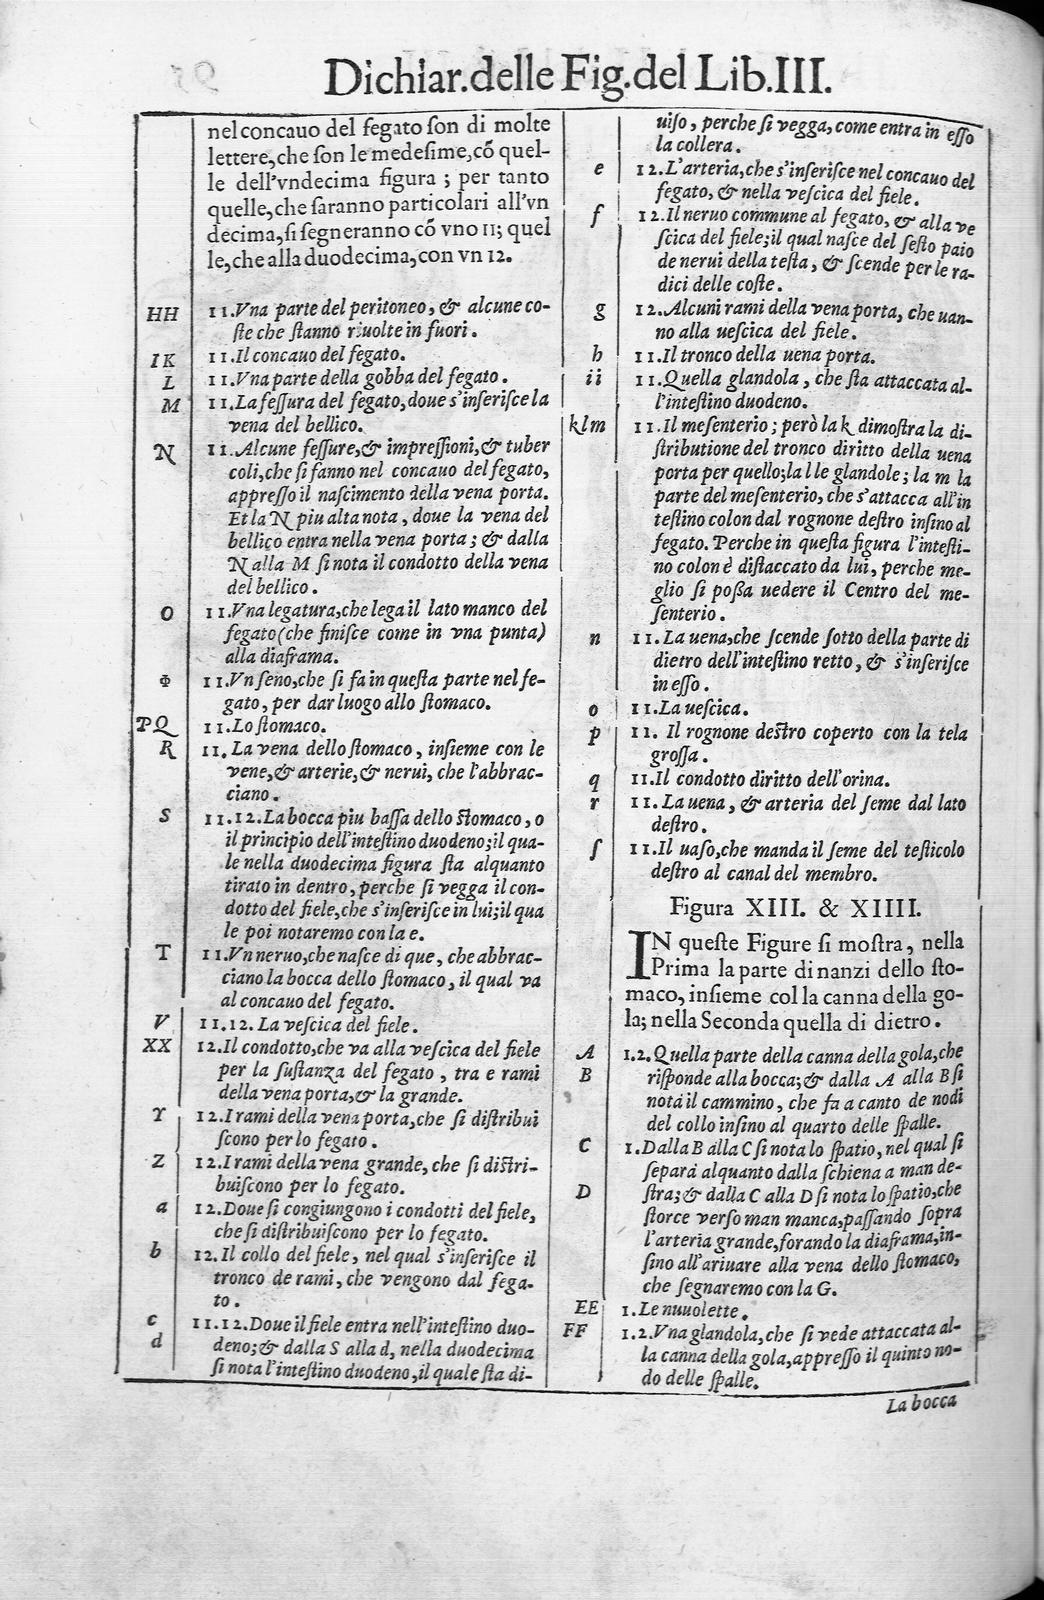 Dichiar.delle Fig.del Lib.III.
nel concauo del fegato ſon di molte
lettere,che ſon le medeſime,cõ quel-
le dell'vndecima figura ; per tanto
quelle,che ſaranno particolari all'vn
decima,ſi ſegneranno cõ vno 11; quel
le,che alla duodecima,con vn 12.
HH 11.Vna parte del peritoneo, & alcune co-
ſte che ſtanno riuolte in fuori.
IK 11.Il concauo del fegato.
L 11.Vna parte della gobba del fegato.
M 11.La feſſura del fegato,doue s'inſeriſce la
vena del bellico.
N 11.Alcune feſſure,& impreſſioni,& tuber
coli,che ſi fanno nel concauo del fegato,
appreſſo il naſcimento della vena porta.
Et la N piu alta nota, doue la vena del
bellico entra nella vena porta; & dalla
N alla M ſi nota il condotto della vena
del bellico.
O 11.Vna legatura,che lega il lato manco del
fegato(che finiſce come in vna punta)
alla diaframa.
Φ 11.Vn ſeno,che ſi fa in queſta parte nel fe-
gato, per dar luogo allo ſtomaco.
PQ 11.Lo ſtomaco.
R 11. La vena dello ſtomaco, inſieme con le
vene,& arterie,& nerui, che l'abbrac-
ciano.
S 11.12.La bocca piu baſſa dello ſtomaco, o
il principio dell'inteſtino duodeno;il qua-
le nella duodecima figura ſta alquanto
tirato in dentro, perche ſi vegga il con-
dotto del fiele,che s'inſeriſce in lui;il qua
le poi notaremo con la e.
T 11.Vn neruo,che naſce di que, che abbrac-
ciano la bocca dello ſtomaco, il qual va
al concauo del fegato.
V 11.12. La veſcica del fiele.
XX 12.Il condotto,che va alla veſcica del fiele
per la ſuſtanza del fegato, tra e rami
della vena porta,& la grande.
Y 12.I rami della vena porta,che ſi diſtribui
ſcono per lo fegato.
Z 12.I rami della vena grande, che ſi diſtri-
buiſcono per lo fegato.
a 12.Doue ſi congiungono i condotti del fiele,
che ſi diſtribuiſcono per lo fegato.
b 12. Il collo del fiele, nel qual s'inſeriſce il
tronco de rami, che vengono dal fega-
to.
c 11.12.Doue il fiele entra nell'inteſtino duo-
d deno;& dalla S alla d, nella duodecima
ſi nota l'inteſtino duodeno,il quale ſta di-
uiſo, perche ſi vegga, come entra in eſſo
la collera.
e 12.L'arteria,che s'inſeriſce nel concauo del
fegato, & nella veſcica del fiele.
f 12.Il neruo commune al fegato, & alla ve
ſcica del fiele;il qual naſce del ſeſto paio
de nerui della teſta, & ſcende per le ra-
dici delle coſte.
g 12.Alcuni rami della vena porta, che uan-
no alla ueſcica del fiele.
h 11.Il tronco della uena porta.
ii 11.Quella glandola, che ſta attaccata al-
l'inteſtino duodeno.
klm 11.Il meſenterio; però la k dimoſtra la di-
ſtributione del tronco diritto della uena
porta per quello;la l le glandole; la m la
parte del meſenterio, che s'attacca all'in
teſtino colon dal rognone deſtro inſino al
fegato. Perche in queſta figura l'inteſti-
no colon è diſtaccato da lui, perche me-
glio ſi poſſa uedere il Centro del me-
ſenterio.
n 11.La uena,che ſcende ſotto della parte di
dietro dell'inteſtino retto, & s'inſeriſce
in eſſo.
o 11.La ueſcica.
p 11. Il rognone deſtro coperto con la tela
groſſa.
q 11.Il condotto diritto dell'orina.
r 11.La uena, & arteria del ſeme dal lato
deſtro.
ſ 11.Il uaſo,che manda il ſeme del teſticolo
deſtro al canal del membro.
Figura XIII. & XIIII.
IN queſte Figure ſi moſtra, nella
Prima la parte dinanzi dello ſto-
maco, inſieme col la canna della go-
la; nella Seconda quella di dietro.
A 1.2.Quella parte della canna della gola,che
B riſponde alla bocca;& dalla A alla B ſi
nota il cammino, che fa a canto de nodi
del collo inſino al quarto delle ſpalle.
C 1.Dalla B alla C ſi nota lo ſpatio, nel qual ſi
ſepara alquanto dalla ſchiena a man de-
D ſtra;& dalla C alla D ſi nota lo ſpatio,che
ſtorce verſo man manca,paſſando ſopra
l'arteria grande,forando la diaframa,in-
ſino all'ariuare alla vena dello ſtomaco,
che ſegnaremo con la G.
EE 1.Le nuuolette.
FF 1.2.Vna glandola,che ſi vede attaccata al-
la canna della gola,appreſſo il quinto no-
do delle ſpalle.
La bocca